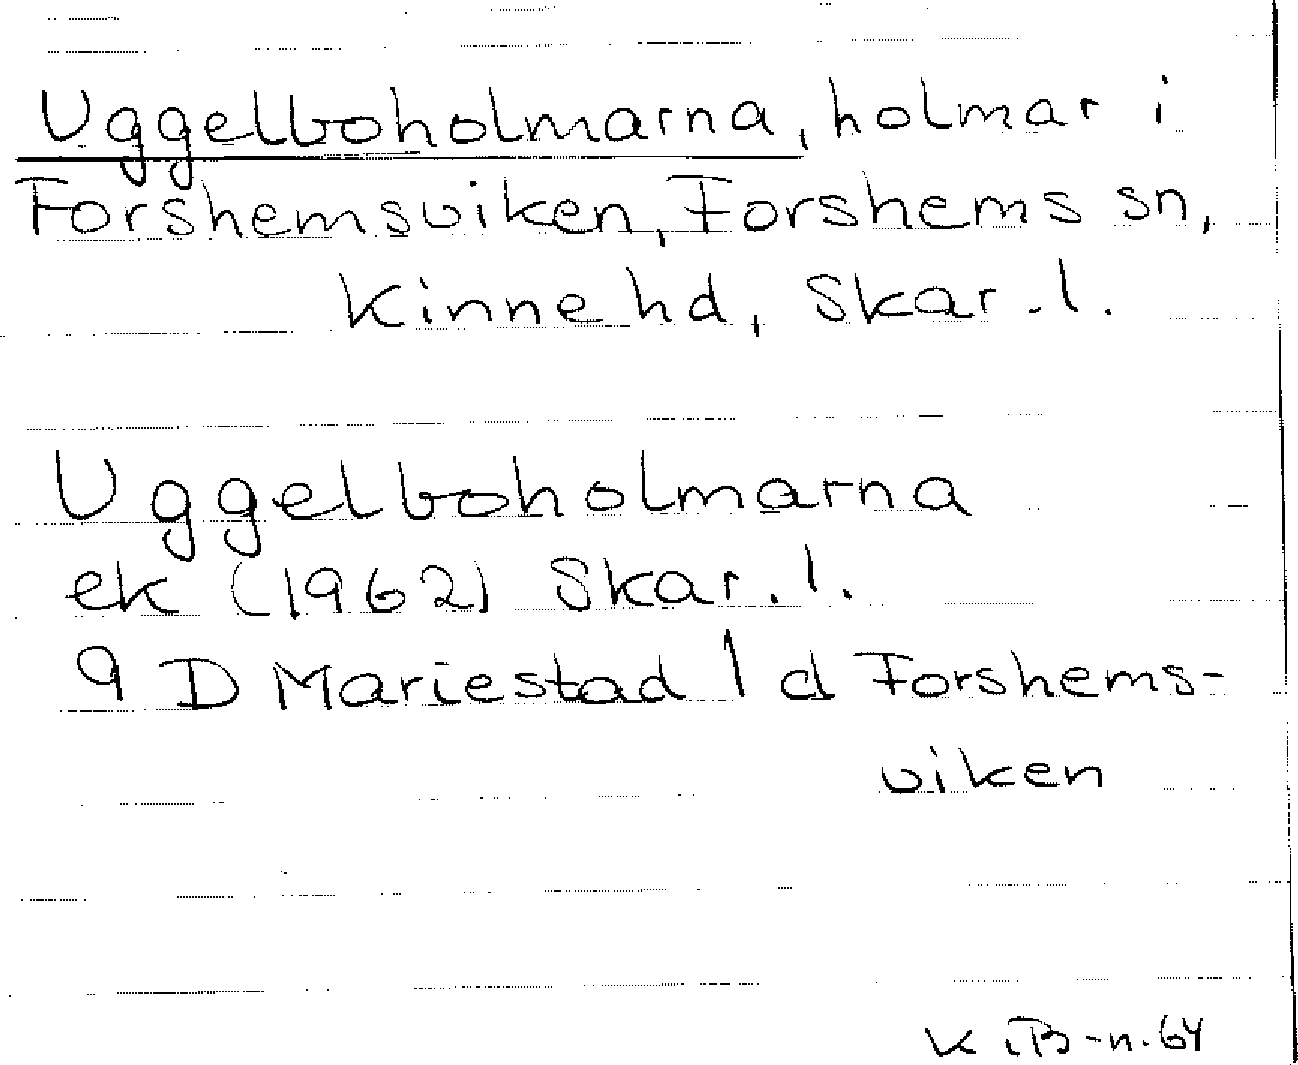 Uggelboholmarna, holmar i
Forshemsviken, Forshems sn,
Kinne hd, Skar. l.
Uggelboholmarna
ek (1962) Skar. l.
9 D Mariestad 1 d Forshems-
viken
K iB-n. 64